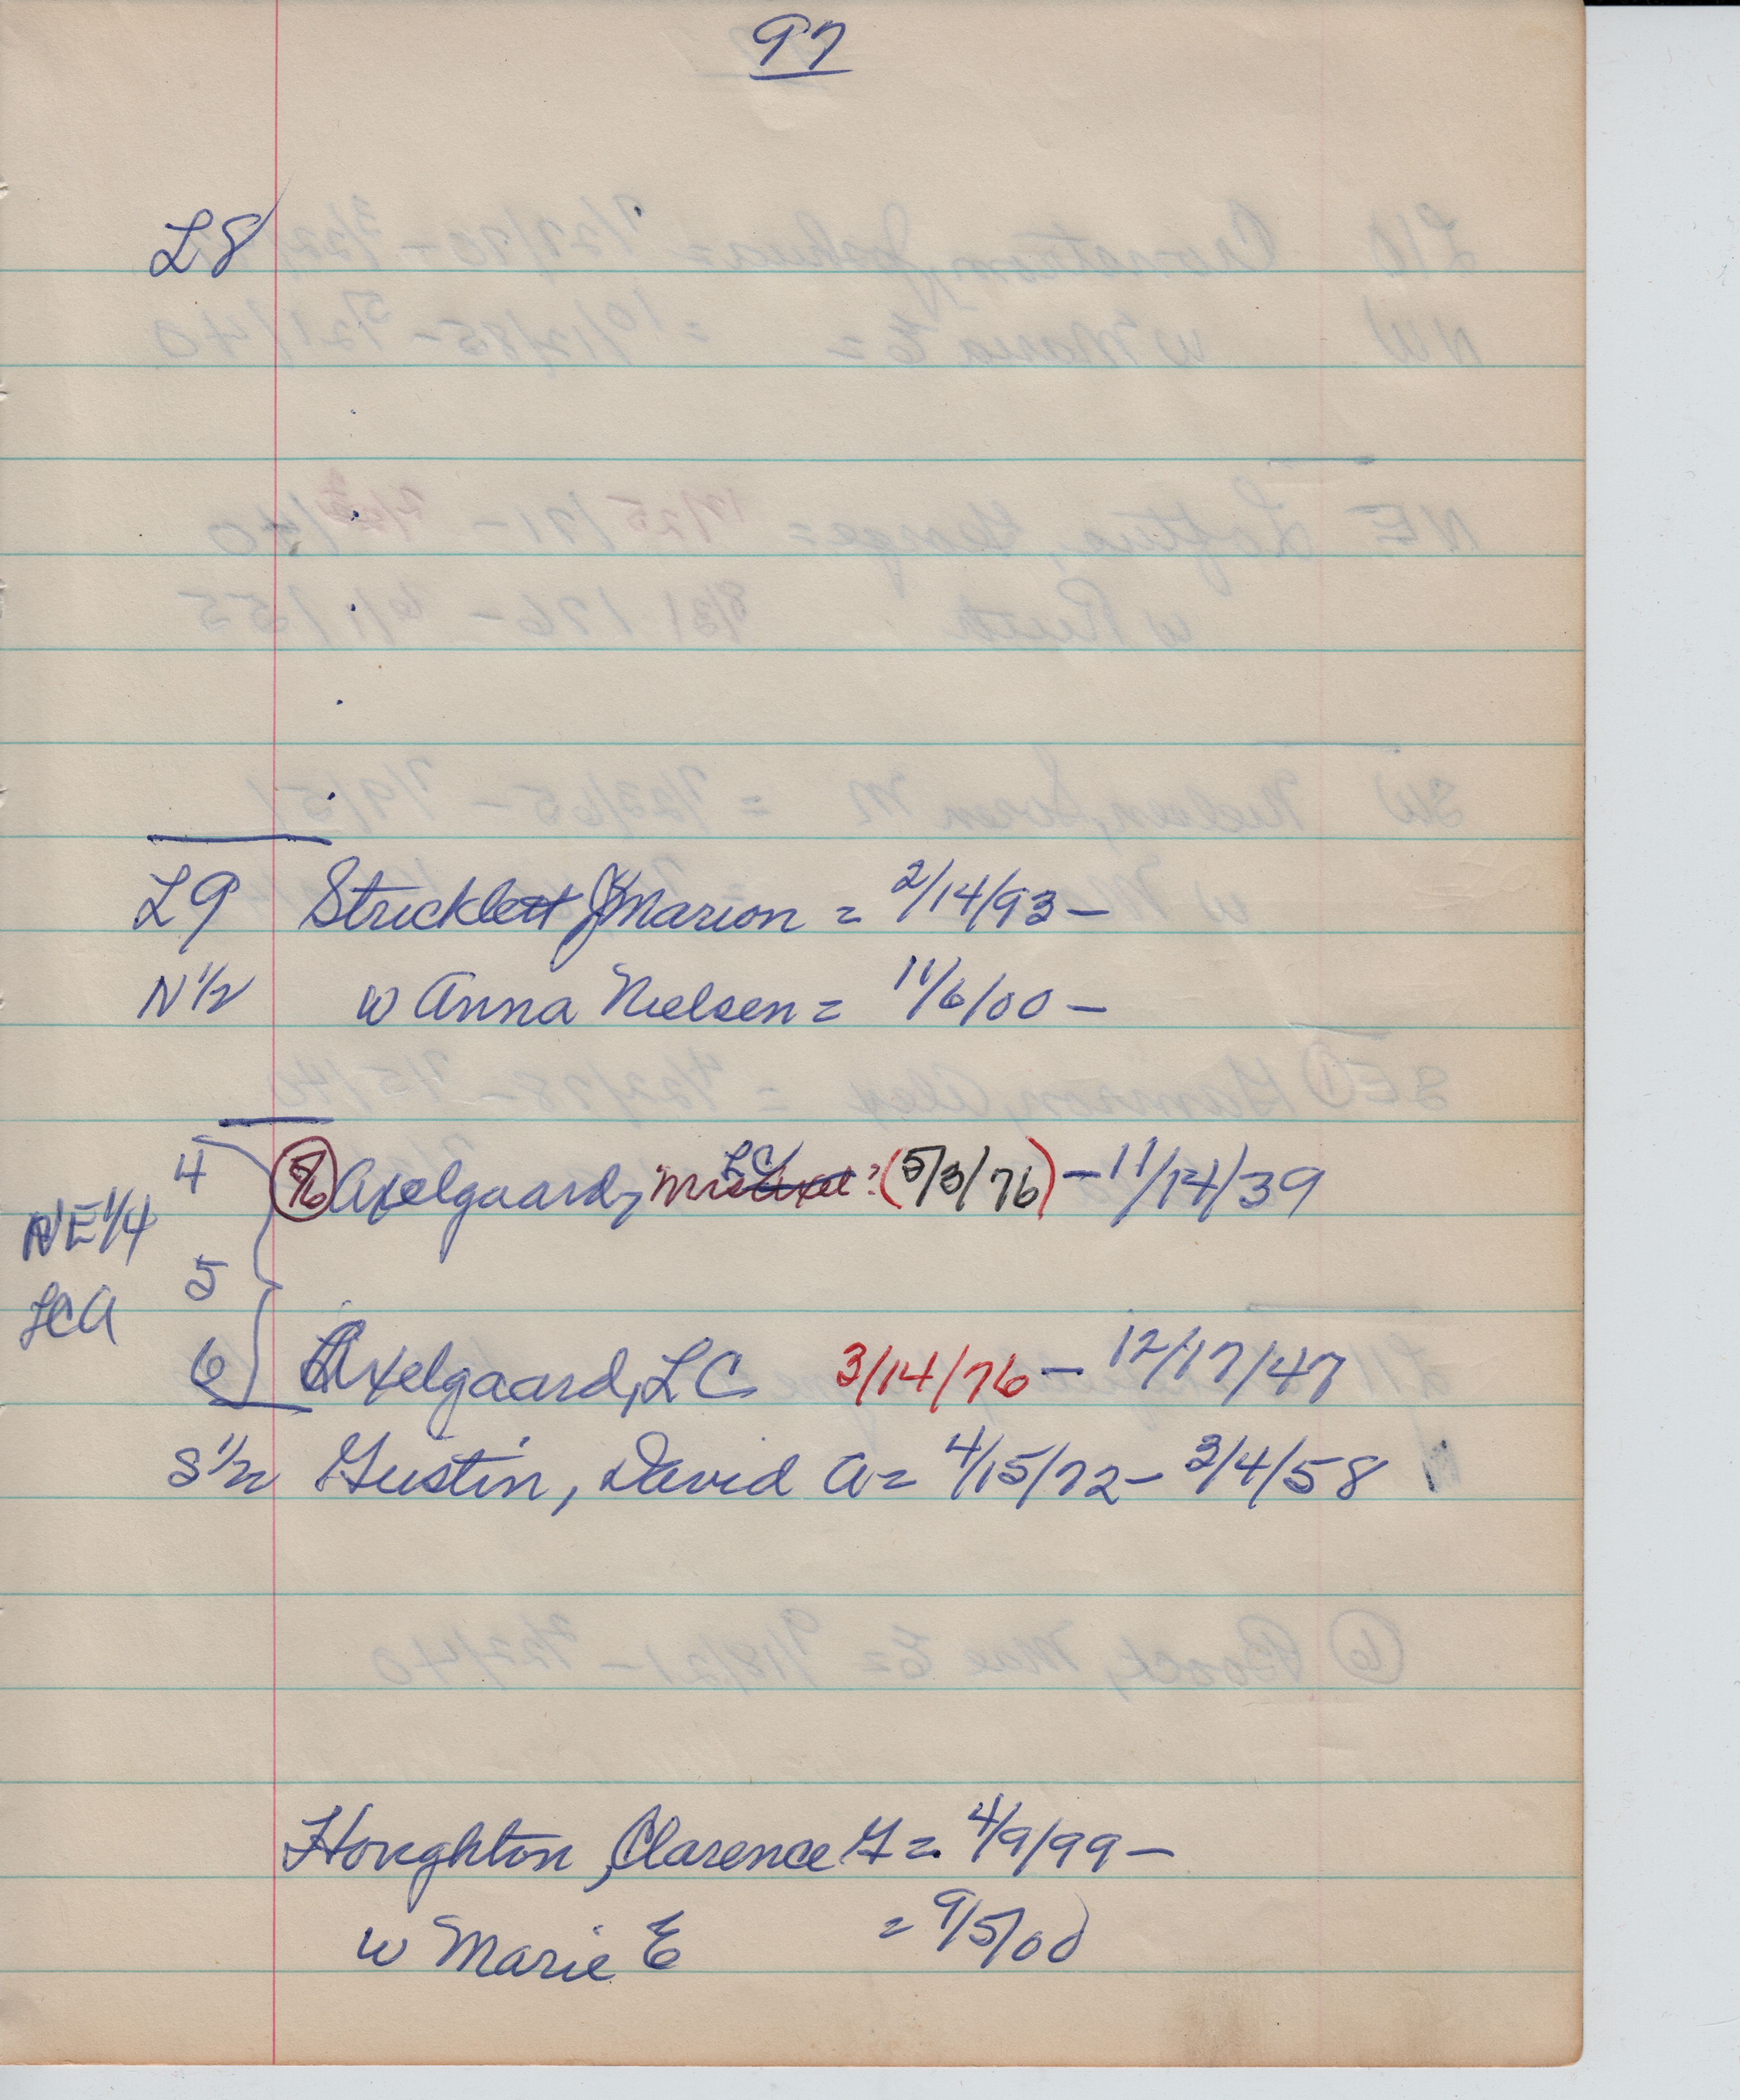 97
L8
L9 Stricklett J Marion = 2/14/93 –
N 1/2 w Anna Nielsen = 11/6/00 –
4 5/6 Axelgaard, LC (5/3/76) – 11/14/39
NE 1/4
5
LCA
6 Axelgaard, L C 3/14/76 – 12/17/47
S 1/2 Gustin, David A = 4/15/72 – 3/4/58
Houghton, Clarence G = 4/9/99 –
w Marie E = 9/5/00